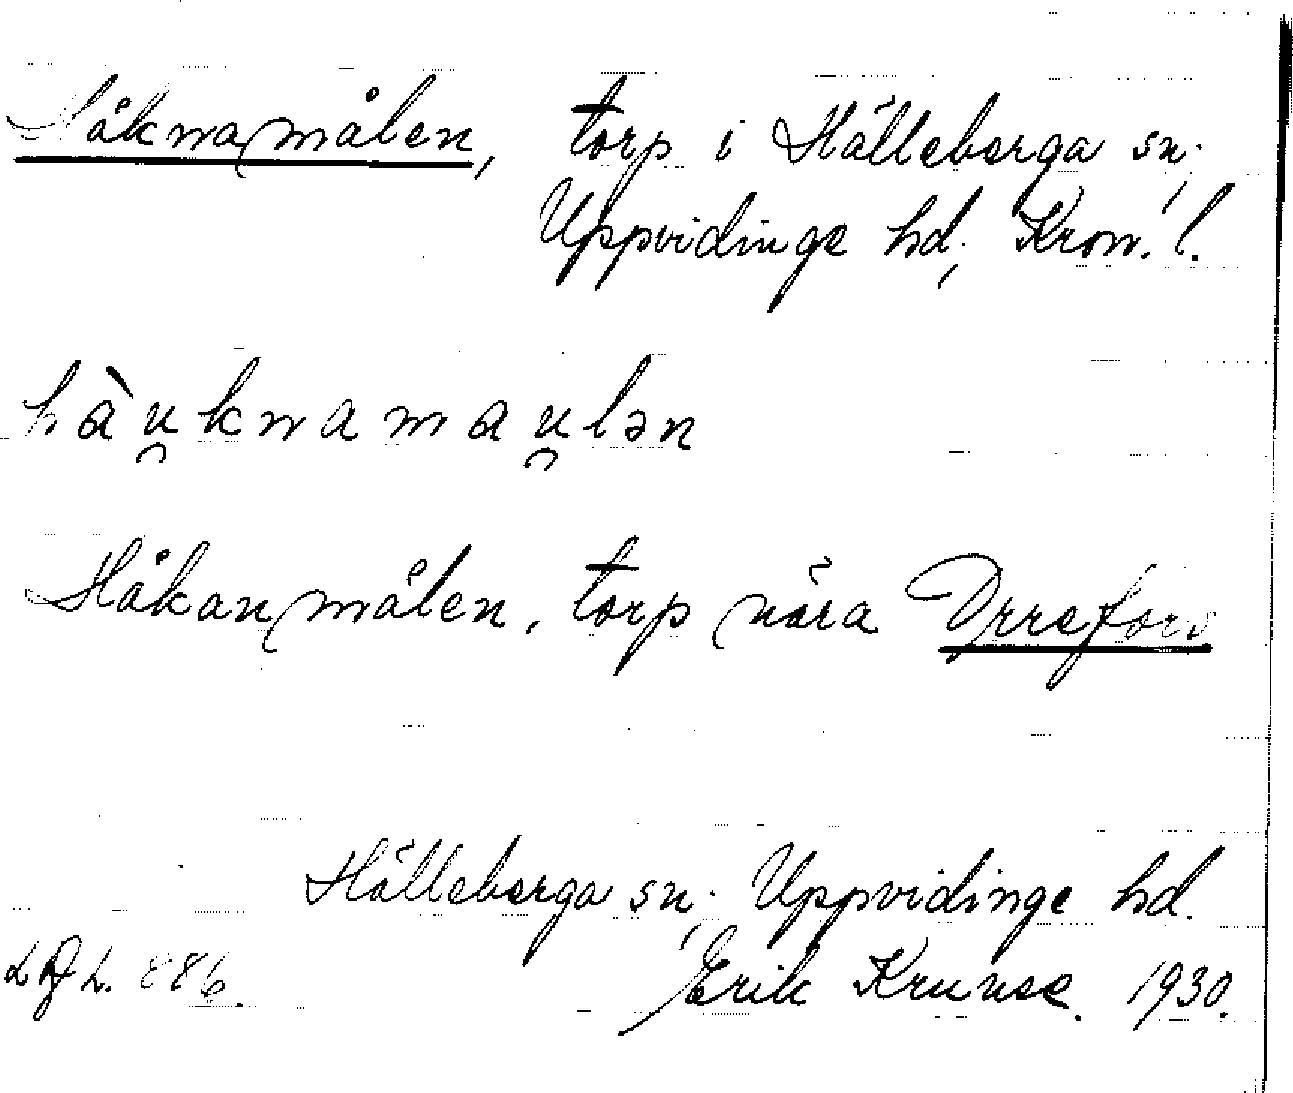 Håknamålen, torp i Hälleberga sn.,
Uppvidinge hd., Kron. l.
hàu̯knamau̯lən
Håkanmålen, torp nära Orrefors
Hälleberga sn., Uppvidinge hd.
Erik Krunse. 1930.
886.